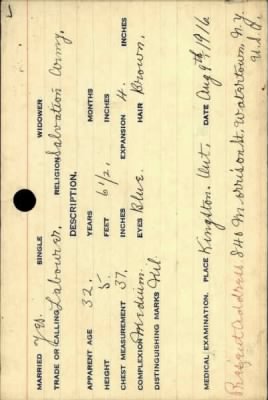 MARRIED Yes. SINGLE WIDOWER
TRADE OR CALLING Labourer. RELIGION Salvation Army.
DESCRIPTION.
APPARENT AGE 32. YEARS MONTHS
HEIGHT 5. FEET 6½. INCHES
CHEST MEASUREMENT 37. INCHES EXPANSION 4. INCHES
COMPLEXION Medium. EYES Blue. HAIR Brown.
DISTINGUISHING MARKS Nil.
MEDICAL EXAMINATION. PLACE Kingston. Ont. DATE Aug 9th 1916
Present address. 846 Morrison St, Watertown, N.Y.
U.S.A.